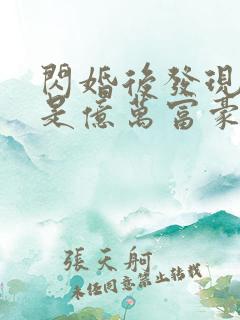 閃婚後發現
是億萬富豪
張天舸
未經同意禁止轉載